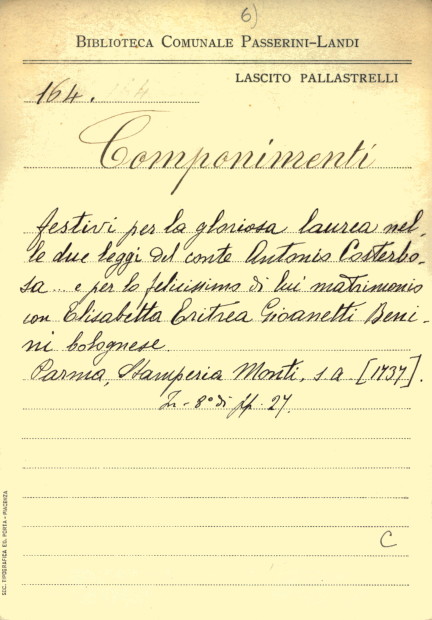 6)
BIBLIOTECA COMUNALE PASSERINI-LANDI
LASCITO PALLASTRELLI
164. 164
Componimenti
festivi per la gloriosa laurea nel-
le due leggi del conte Antonio Costerbo-
sa... e per lo felicissimo di lui matrimonio
con Elisabetta Eritrea Gioanetti Beni-
ni bolognese.
Parma, Stamperia Monti, s a [1737].
In-8° di pp. 27.
C
SOC. TIPOGRAFICA ED. PORTA - PIACENZA